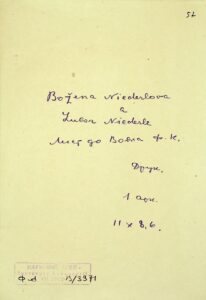 57
Božena Niederlova
a
Lubor Niederle
Лист до Вовка Ф. К.
Друк.
1 арк.
11 x 8,6.
Ф. 1 В/3371